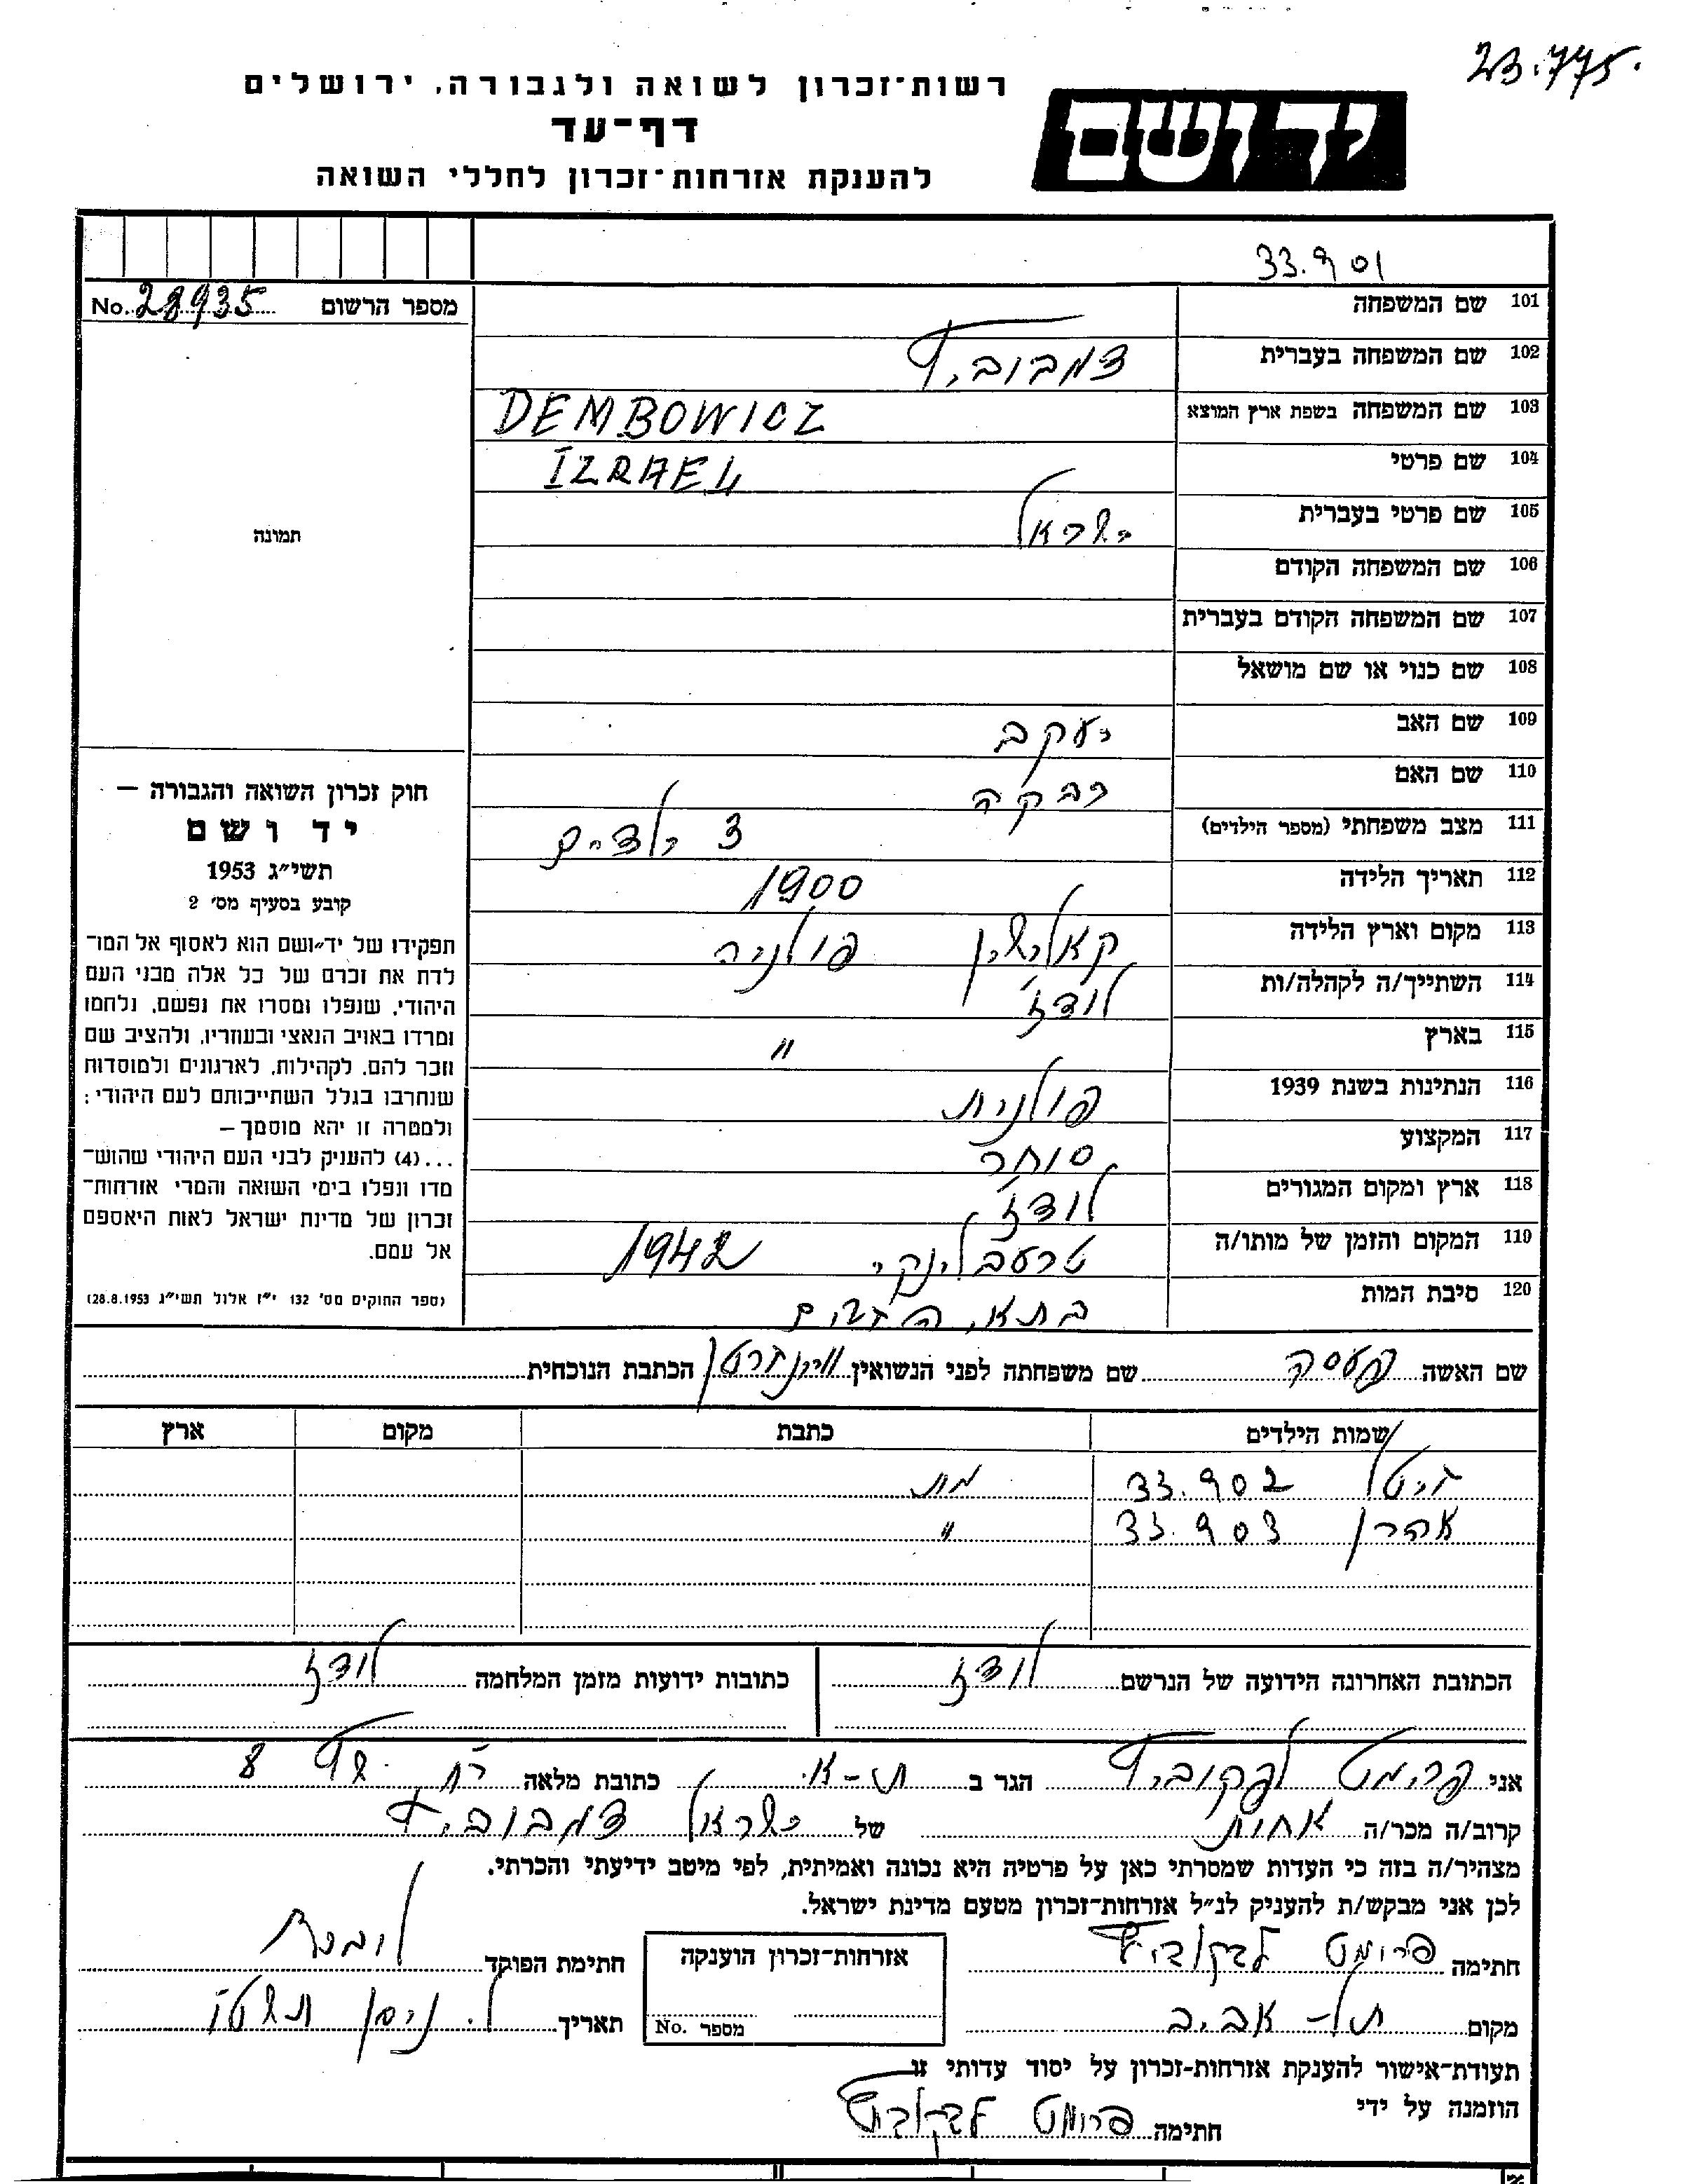 23.775.
רשות־זכרון לשואה ולגבורה, ירושלים
דף־עד
להענקת אזרחות־זכרון לחללי השואה
יד ושם
33.901
מספר הרשום No. 28935
תמונה
101 שם המשפחה
102 שם המשפחה בעברית דמבוביץ
103 שם המשפחה בשפת ארץ המוצא DEMBOWICZ
104 שם פרטי IZRAEL
105 שם פרטי בעברית ישראל
106 שם המשפחה הקודם
107 שם המשפחה הקודם בעברית
108 שם כנוי או שם מושאל
109 שם האב יעקב
110 שם האם רבקה
111 מצב משפחתי (מספר הילדים) 3 ילדים
112 תאריך הלידה 1900
113 מקום וארץ הלידה קאלישין פולניה
114 השתייך/ה לקהלה/ות לודז'
115 בארץ "
116 הנתינות בשנת 1939 פולנית
117 המקצוע סוחר
118 ארץ ומקום המגורים לודז'
119 המקום והזמן של מותו/ה טרעבלינקי 1942
120 סיבת המות בתאי הגזים
חוק זכרון השואה והגבורה —
יד ושם
תשי״ג 1953
קובע בסעיף מס׳ 2
תפקידו של יד״ושם הוא לאסוף אל המו־
לדת את זכרם של כל אלה מבני העם
היהודי, שנפלו ומסרו את נפשם, נלחמו
ומרדו באויב הנאצי ובעוזריו, ולהציב שם
וזכר להם, לקהילות, לארגונים ולמוסדות
שנחרבו בגלל השתייכותם לעם היהודי:
ולמטרה זו יהא מוסמך —
...(4) להעניק לבני העם היהודי שהוש־
מדו ונפלו בימי השואה והמרי אזרחות־
זכרון של מדינת ישראל לאות היאספם
אל עמם.
(ספר החוקים מס׳ 132 י״ז אלול תשי״ג 28.8.1953)
שם האשה פעסה שם משפחתה לפני הנשואין הכתבת הנוכחית
שמות הילדים כתבת מקום ארץ
גיטל 33.902 מת
אהרן 33.903 "
הכתובת האחרונה הידועה של הנרשם לודז כתובות ידועות מזמן המלחמה לודז
אני פרומט הגר ב ת-א. כתובת מלאה 8
קרוב/ה מכר/ה אחות של ישראל דמבוביץ
מצהיר/ה בזה כי העדות שמסרתי כאן על פרטיה היא נכונה ואמיתית, לפי מיטב ידיעתי והכרתי.
לכן אני מבקש/ת להעניק לנ״ל אזרחות־זכרון מטעם מדינת ישראל.
חתימה פרומט אזרחות־זכרון הוענקה חתימת הפוקד
מקום תל-אביב מספר No. תאריך ל. ניסן תשטו
תעודת־אישור להענקת אזרחות־זכרון על יסוד עדותי זו
הוזמנה על ידי
חתימה פרומט